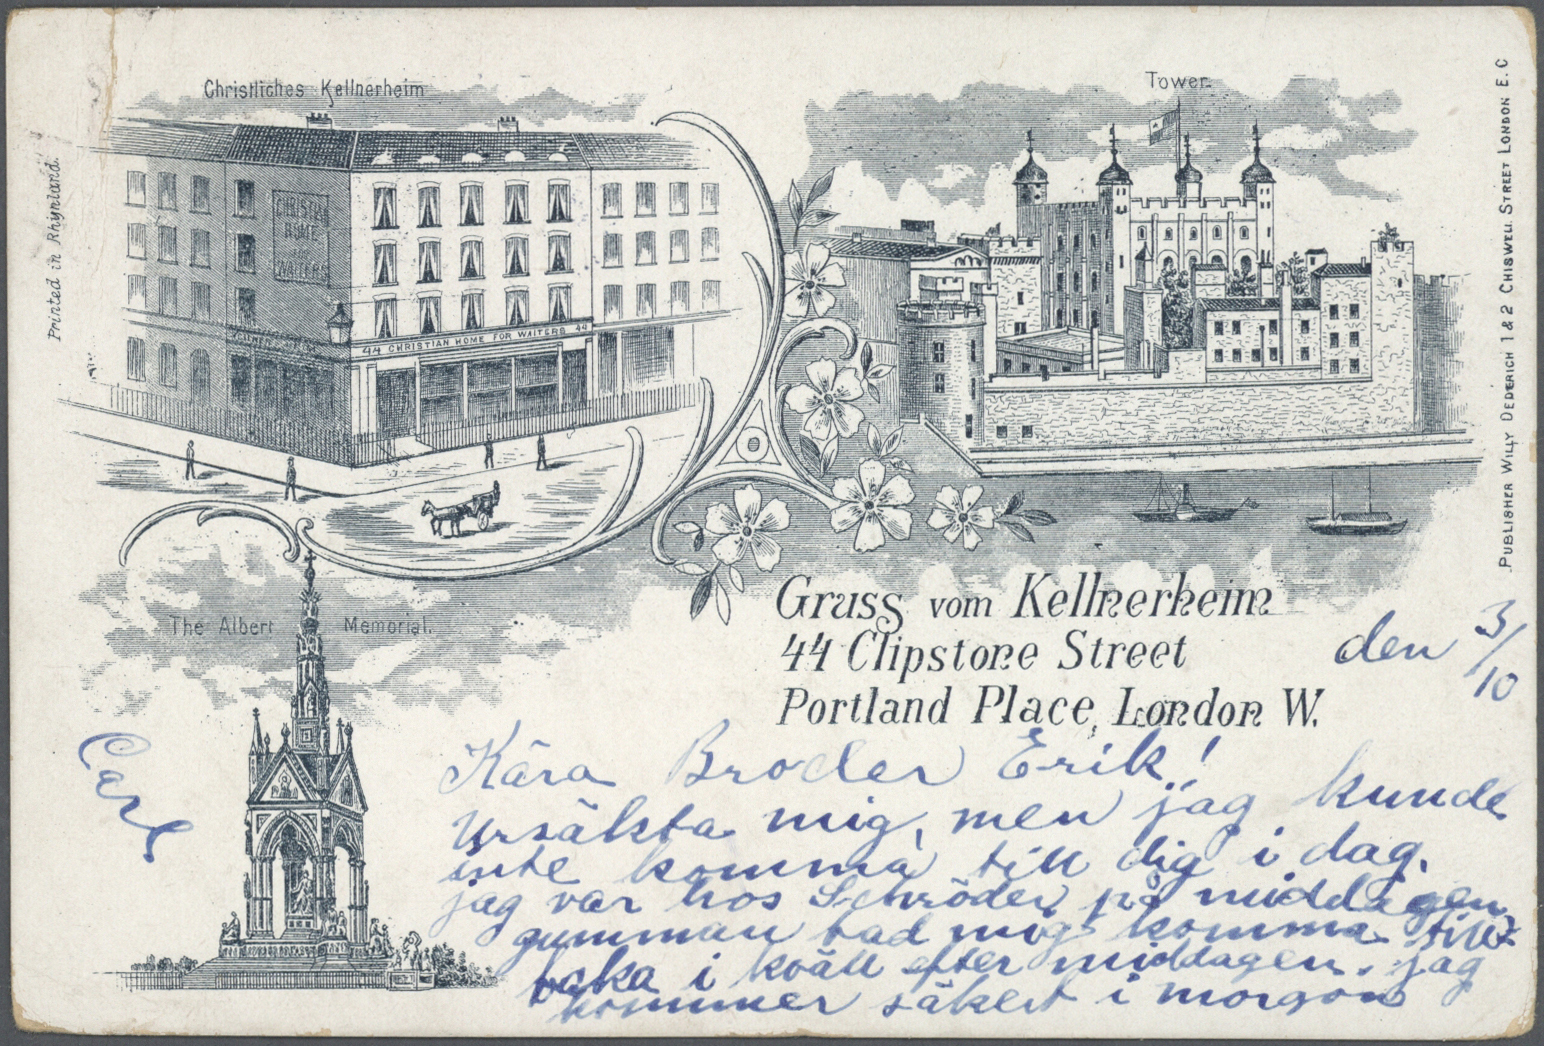 Christliches Kellnerheim
Tower.
Printed in Rhynland.
PUBLISHER WILLY DEDERICH 1 & 2 CHISWELL STREET LONDON E.C
CHRISTIAN
HOME
FOR
WAITERS
44 CHRISTIAN HOME FOR WAITERS 44
The Albert Memorial.
Gruss vom Kellnerheim
44 Clipstone Street
Portland Place, London W.
den 3/10
Carl
Kära Broder Erik!
Ursäkta mig, men jag kunde
inte komma till dig i dag.
jag var hos Schröder på middagen
gumman bad mig komma till-
baka i kväll efter middagen. jag
kommer säkert i morgon